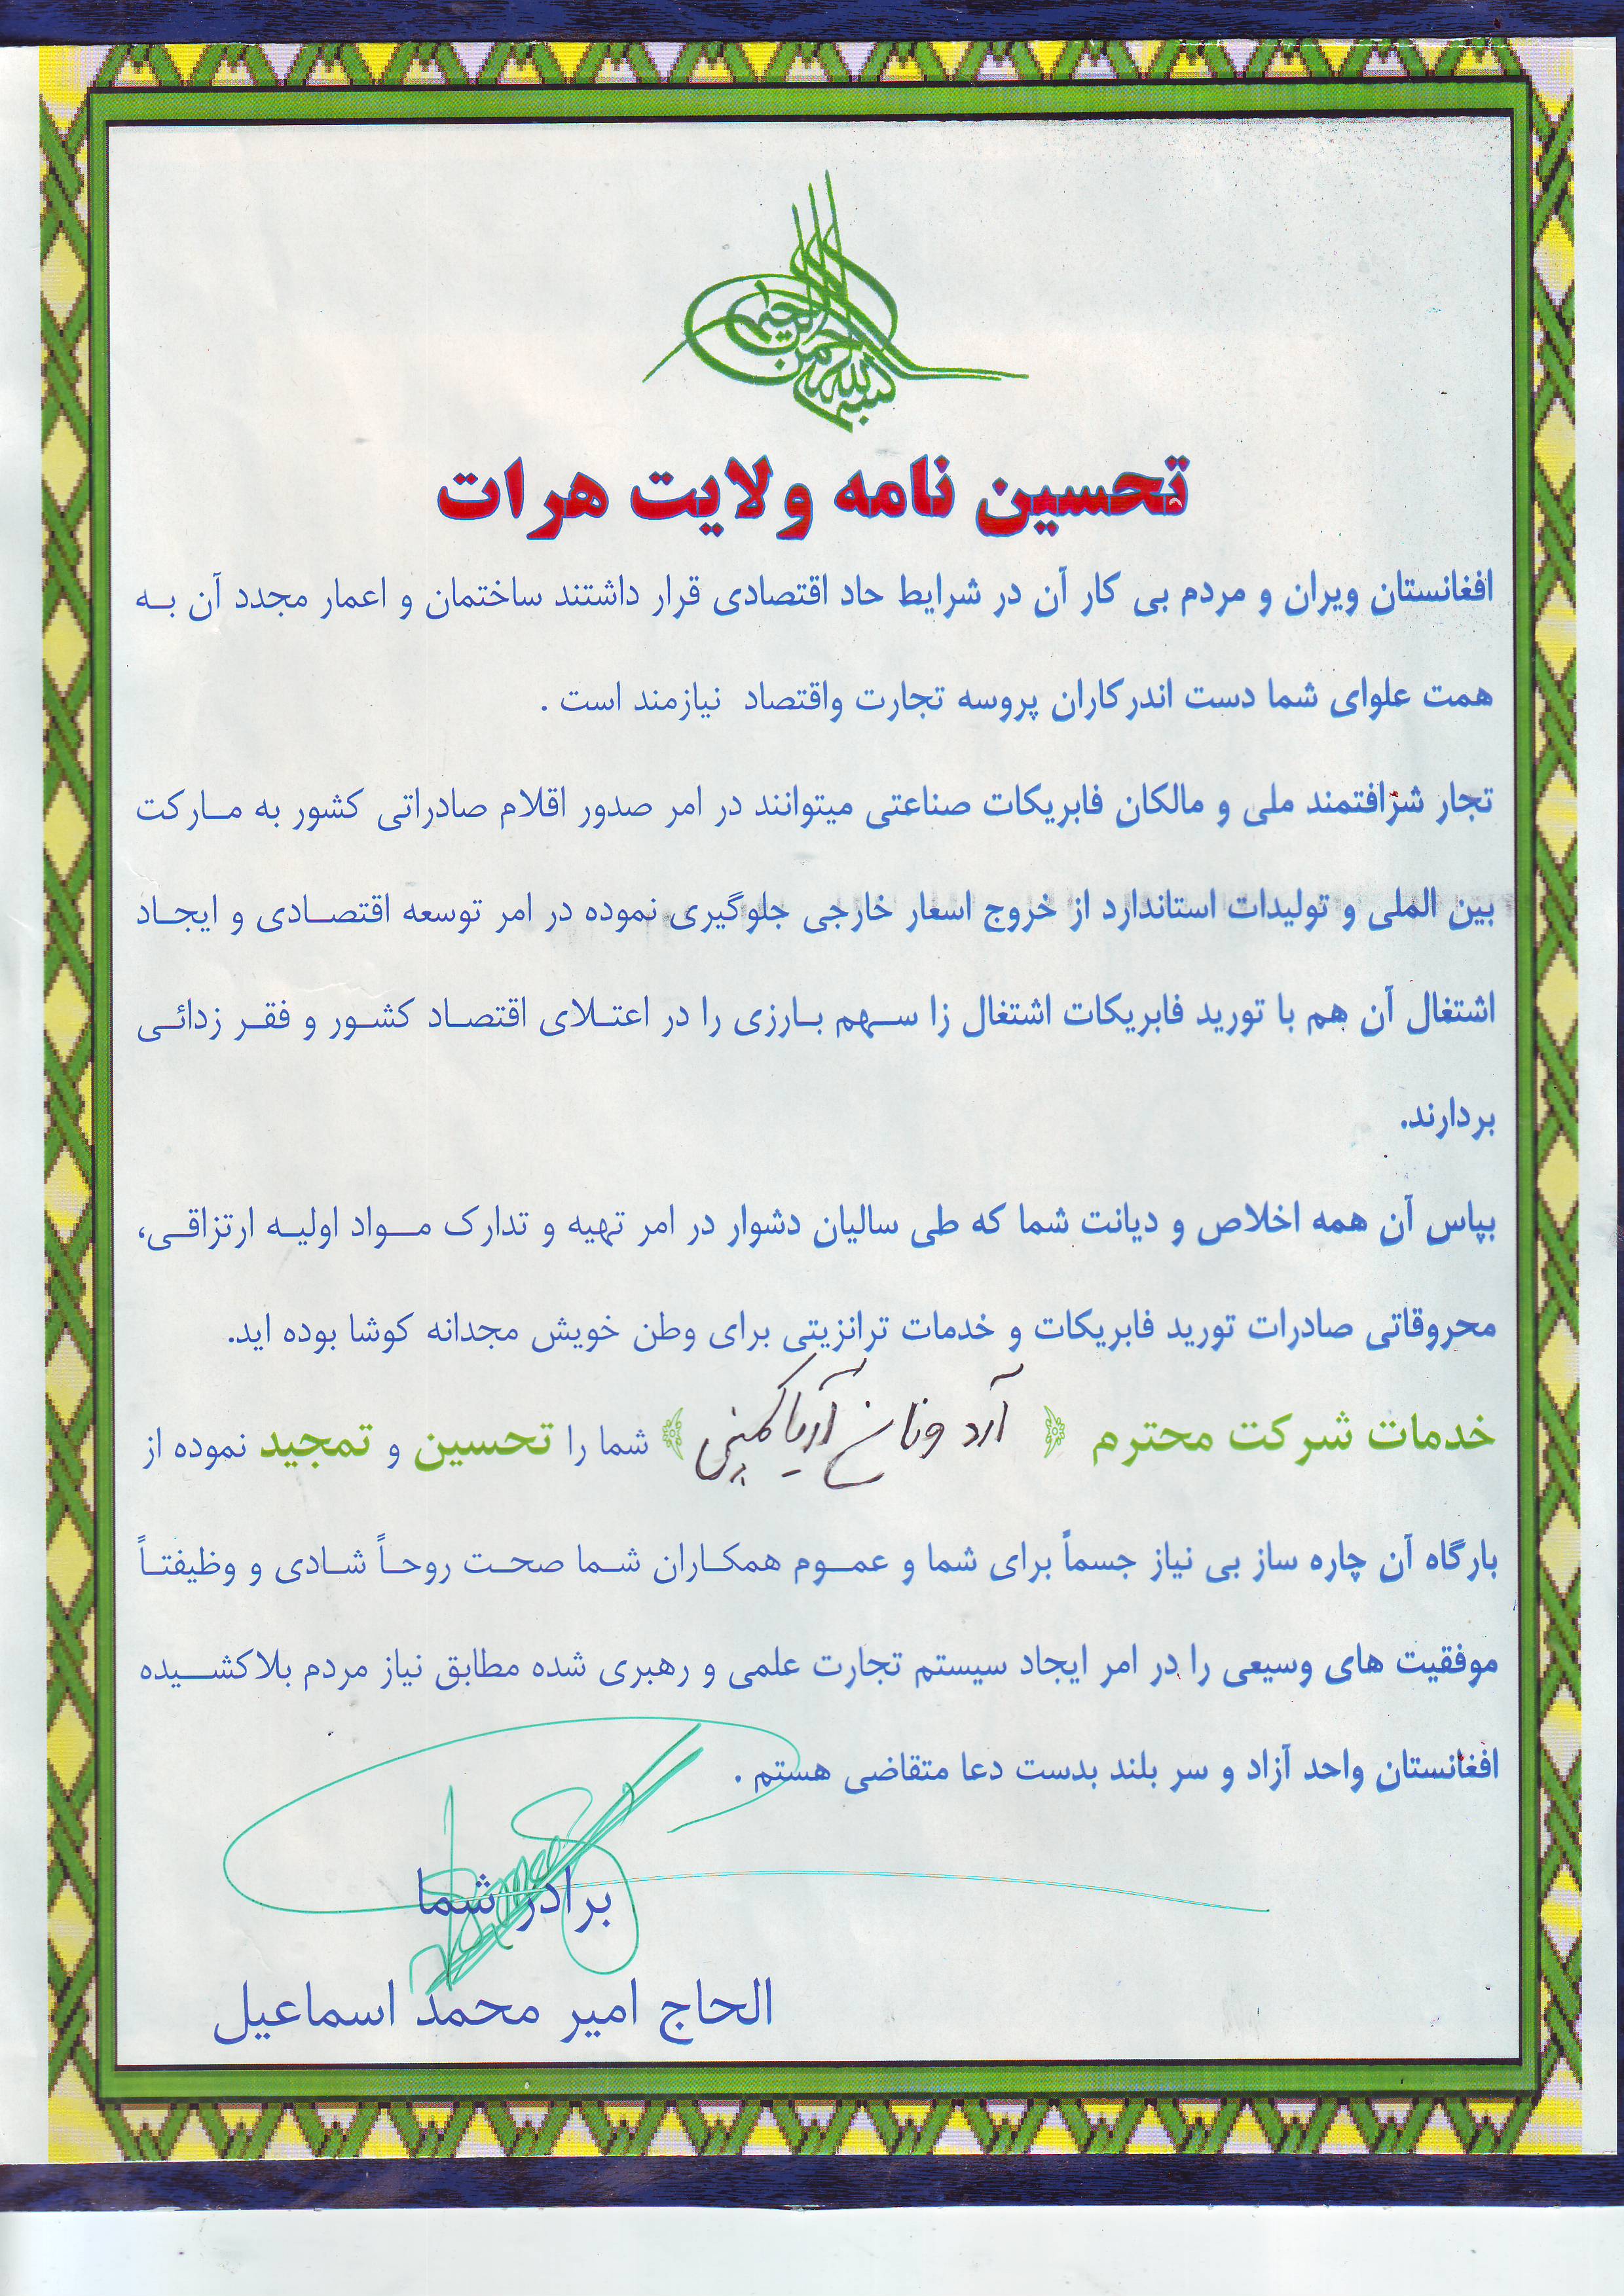 بسم الله الرحمن الرحیم
تحسین نامه ولایت هرات
افغانستان ویران و مردم بی کار آن در شرایط حاد اقتصادی قرار داشتند ساختمان و اعمار مجدد آن به
همت علوای شما دست اندرکاران پروسه تجارت واقتصاد نیازمند است .
تجار شرافتمند ملی و مالکان فابریکات صناعتی میتوانند در امر صدور اقلام صادراتی کشور به مارکت
بین المللی و تولیدات استاندارد از خروج اسعار خارجی جلوگیری نموده در امر توسعه اقتصادی و ایجاد
اشتغال آن هم با تورید فابریکات اشتغال زا سهم بارزی را در اعتلای اقتصاد کشور و فقر زدائی
بردارند.
بپاس آن همه اخلاص و دیانت شما که طی سالیان دشوار در امر تهیه و تدارک مواد اولیه ارتزاقی،
محروقاتی صادرات تورید فابریکات و خدمات ترانزیتی برای وطن خویش مجدانه کوشا بوده اید.
خدمات شرکت محترم ﴿ آرد و نان آریا کمپنی ﴾ شما را تحسین و تمجید نموده از
بارگاه آن چاره ساز بی نیاز جسماً برای شما و عموم همکاران شما صحت روحاً شادی و وظیفتاً
موفقیت های وسیعی را در امر ایجاد سیستم تجارت علمی و رهبری شده مطابق نیاز مردم بلاکشیده
افغانستان واحد آزاد و سر بلند بدست دعا متقاضی هستم .
برادر شما
الحاج امیر محمد اسماعیل